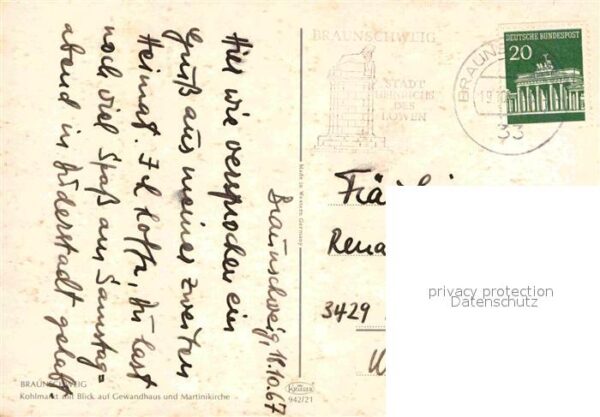 Braunschweig, 18.10.67
Hier wie versprochen ein
Gruß aus meiner zweiten
Heimat. Ich hoffe, Du hast
noch viel Spaß am Samstag=
abend in Duderstadt gehabt
BRAUNSCHWEIG
STADT
HEINRICHS
DES
LÖWEN
BRAUNS
19.10
33
DEUTSCHE BUNDESPOST
20
Made in Western Germany
Fräulein
Rena
3429
privacy protection
Datenschutz
BRAUNSCHWEIG
Kohlmarkt mit Blick auf Gewandhaus und Martinikirche
KRÜGER
942/21